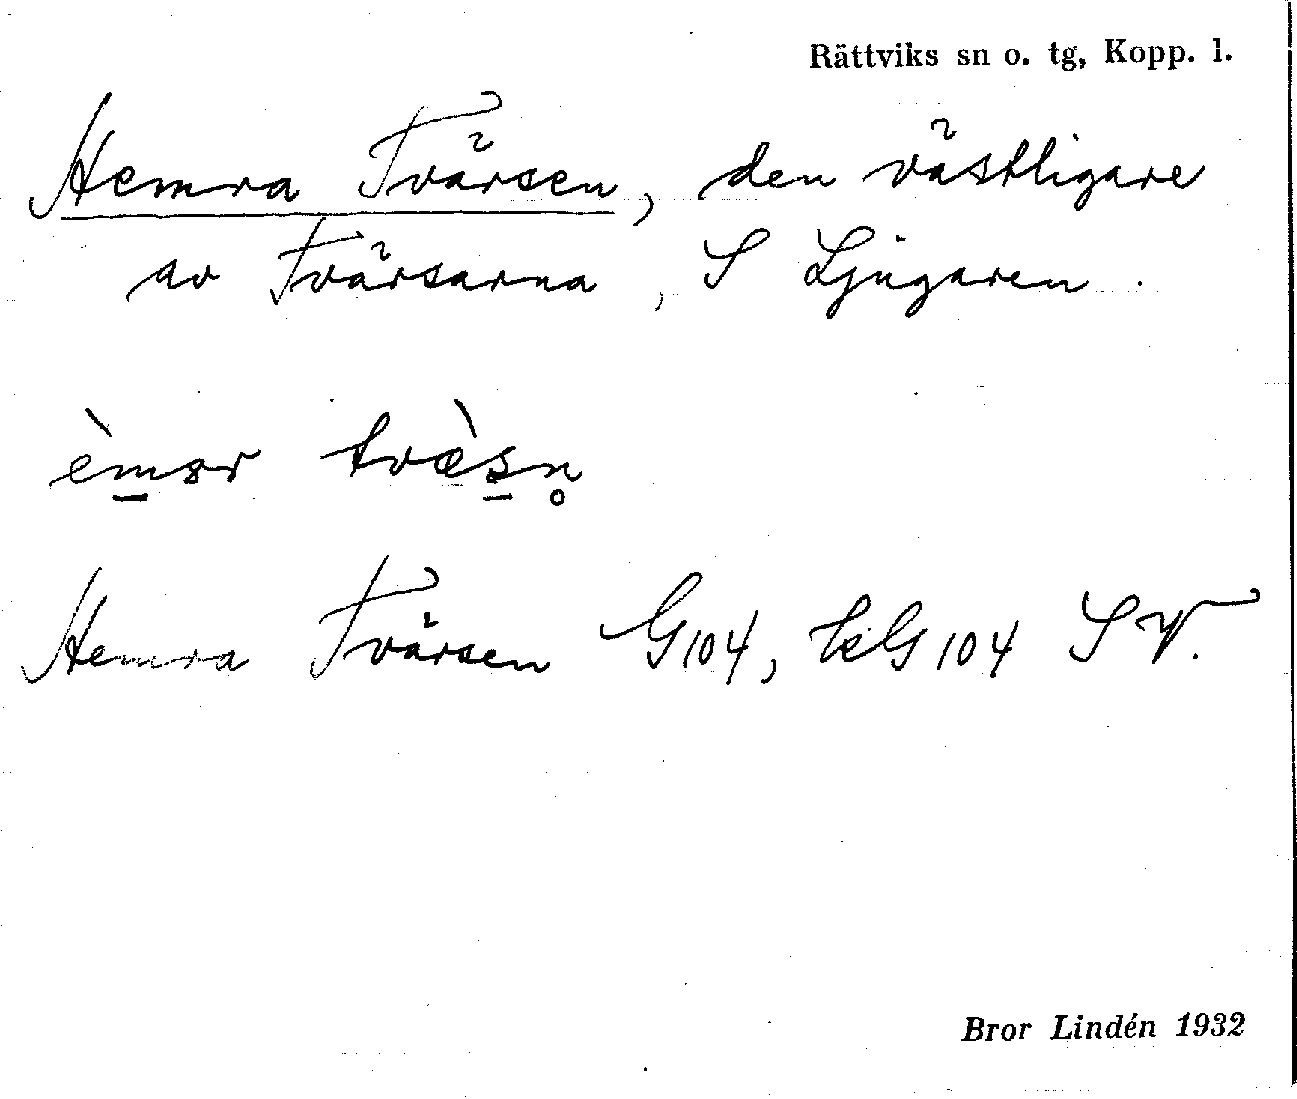 Rättviks sn o. tg, Kopp. l.
Hemra Tvärsen, den västligare
av Tvärsarna, S Ljugaren.
èm̲ər tvæ̀s̲n̥
Hemra Tvärsen G104, kG104 SV.
Bror Lindén 1932